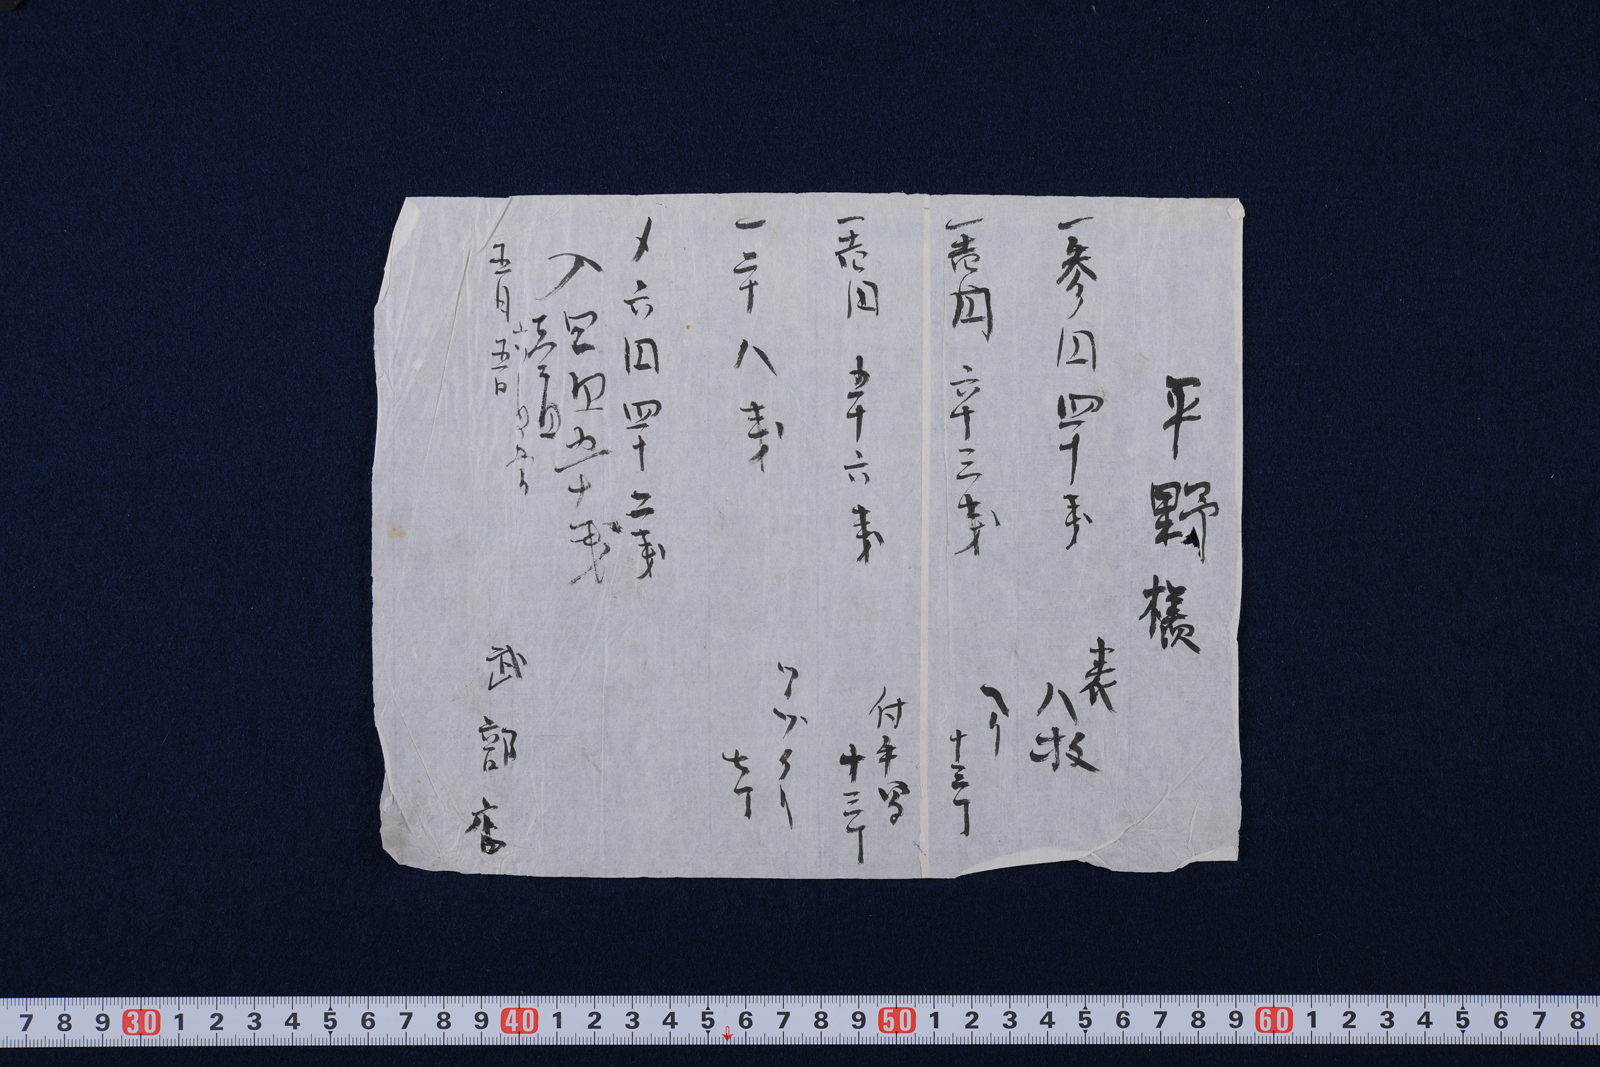 平野様
一参円四十銭
表
八枚
一壱円六十三銭
へり
十三丁
一壱円五十六銭
付手間
十三丁
一二十八銭
七丁
〆六円四十二銭
入四円五十銭
五月五日
武部店
7 8 9 30 1 2 3 4 5 6 7 8 9 40 1 2 3 4 5 6 7 8 9 50 1 2 3 4 5 6 7 8 9 60 1 2 3 4 5 6 7 8